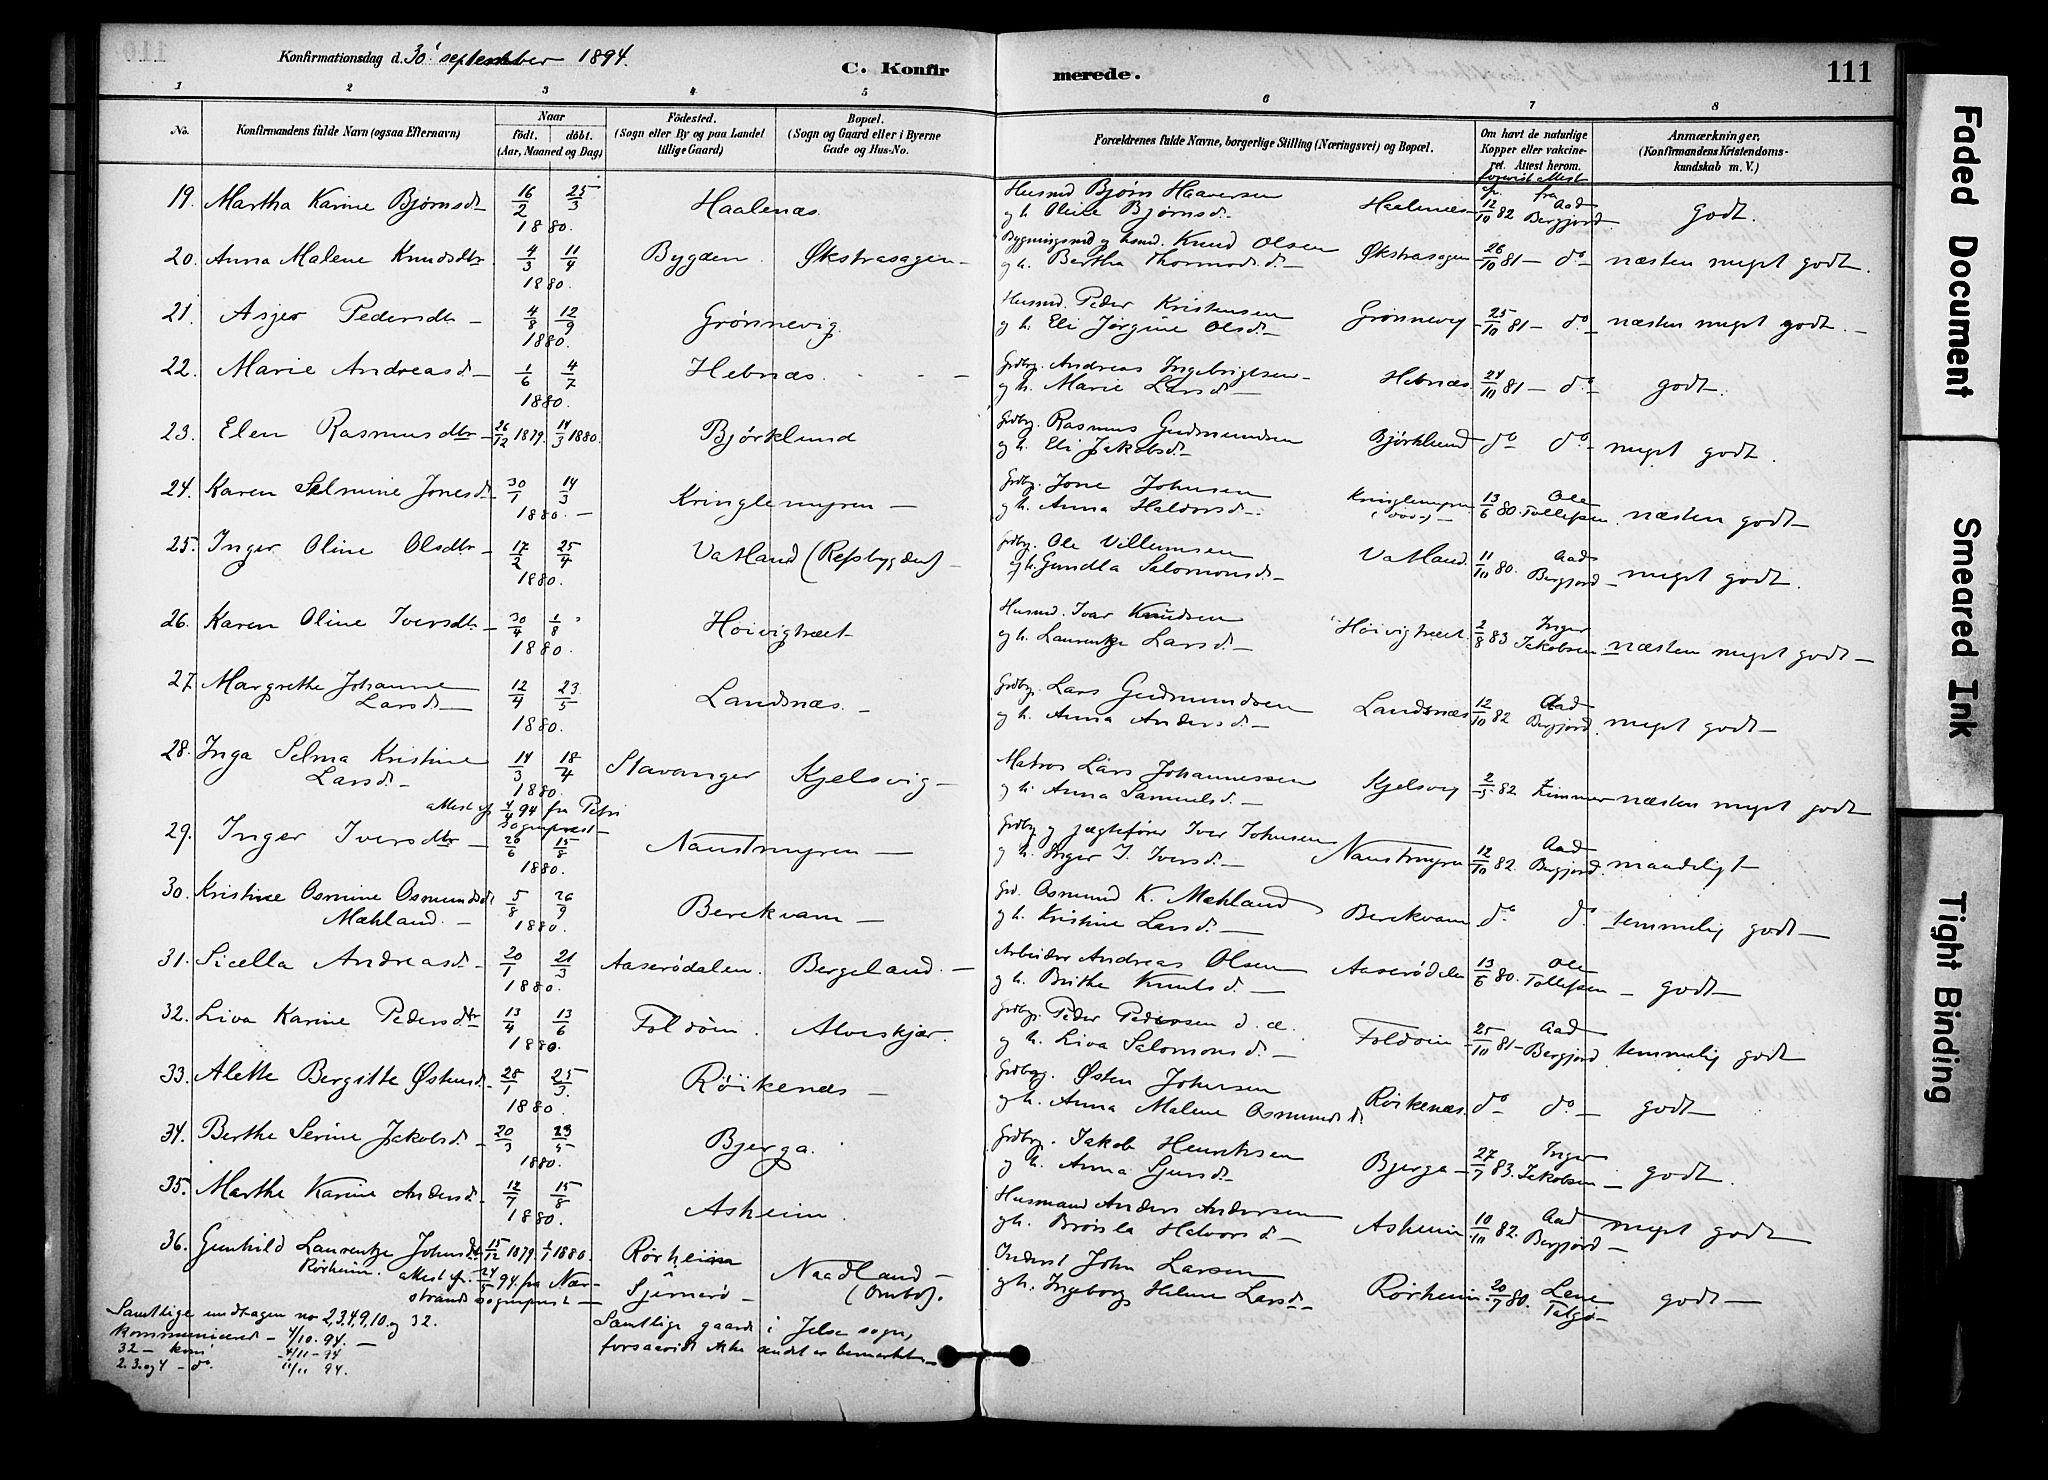 Konfirmationsdag d. 30' september 1894.
C. Konfirmerede.
111
1 2 3 4 5 6 7 8
No.
Konfirmandens fulde Navn (ogsaa Efternavn)
Naar
født. døbt.
(Aar, Maaned og Dag)
Födested.
(Sogn eller By og paa Landet tillige Gaard)
Bopæl.
(Sogn og Gaard eller i Byerne Gade og Hus-No.
Forældrenes fulde Navne, borgerlige Stilling (Næringsvei) og Bopæl.
Om havt de naturlige Kopper eller vakcineret. Attest herom.
Anmærkninger.
(Konfirmandens Kristendomskundskab m. V.)
19. Martha Karine Bjørnsd. 16/2 25/3 1880. Haalenæs Husmd Bjørn Haaversen
og h. Oline Bjørnsd. Haalenæs 12/10 82 Aad Bergjord. godt.
20. Anna Malene Knudsdtr 4/3 11/4 1880. Bygden. Økstrasagen Knud Olsen
og h. Bertha Thormodsd. Økstrasagen 26/10 81 - do næsten meget godt.
21. Asjer Pedersdtr 4/8 12/9 1880. Grønnevig Husmd. Peder Kristensen
og h. Eli Jørgine Olsd. Grønnevig 25/10 81 - do næsten meget godt.
22. Marie Andreasd. 1/6 4/7 1880. Hebnæs. Grdbrg. Andreas Ingebrigtsen
og h. Marie Larsd. Hebnæs 24/10 81 - do godt.
23. Elen Rasmusdtr 26/12 1879. 14/3 1880. Bjørklund Grdbrg. Rasmus Gudmundsen
og h. Eli Jakobsd. Bjørklund do do meget godt.
24. Karen Selmine Jonesd. 30/1 14/3 1880. Kringlemyren Grdbrg. Jone Johnsen
og h. Anna Haldorsd. Kringlemyren 13/6 80. Ole Tollefsen. næsten godt
25. Inger Oline Olsdtr 17/2 25/4 1880. Vatland (Refsbygden) Grdbrg. Ole Villumsen
og h. Gundla Salomonsd. Vatland. 11/10 80. Aad Bergjord meget godt.
26. Karen Oline Iversdtr. 30/4 1/8 1880. Høivigtræet Husmd. Ivar Knudsen
og h. Laurentze Larsd. Høivigtræet. 2/8 83 Inger Jakobsen næsten meget godt
27. Margrethe Johanne Larsd. 12/4 23/5 1880. Landsnæs. Grdbrg. Lars Gudmundsen
og h. Anna Andersd. Landsnæs 12/10 82 Aad Bergjord. meget godt
28. Inga Selma Kristine Larsd. 14/3 18/4 1880. Stavanger Kjelsvig Matros Lars Johannessen
og h. Anna Samuelsd. Kjelsvig 2/5 82 Zimmer næsten meget godt
attest af 4/4 94 fra Petri Sogneprest
29. Inger Iversdtr 20/6 15/8 1880. Naustmyren Grdbrg og jægtefører Iver Johnsen
og h. Inger I. Iversd. Naustmyren 12/10 82. Aad Bergjord. maadeligt
30. Kristine Osmine Osmundsd. Mæhland. 5/8 26/9 1880. Berekvam Grd. Osmund K. Mæhland
og h. Kristine Larsd. Berekvam do do temmelig godt
31. Sicella Andreasd. 20/1 21/3 1880. Aaserødalen. Bergeland. Arbeider Andreas Olsen
og h. Brithe Knutsd. Aaserødalen 13/6 80. Ole Tollefsen godt
32. Liva Karine Pedersdtr 13/4 13/6 1880. Foldøin. Alveskjær. Grdbrg. Peder Pedersen d. æ.
og h. Liva Salomonsd. Foldøin 25/10 81 Aad Bergjord. temmelig godt
33. Alette Bergitte Østensd. 28/1 25/3. 1880. Røikenæs Grdbrg. Østen Johnsen
og h. Anna Malene Osmundsd. Røikenæs. do do godt
34. Berthe Serine Jakobsd. 20/3 23/5 1880. Bjerga. Grdbrg. Jakob Henriksen
og h. Anna Sjursd. Bjerga 27/7 83. Inger Jakobsen godt.
35. Marthe Karine Andersd. 12/7 15/8 1880. Asheim. Husmand Anders Andersen
og h. Brøisla Halvorsd. Asheim 10/10 82. Aad Bergjord meget godt
36. Gunhild Laurentze Johnsdtr Rørheim. 15/12 1879. 1/1 1880. Rørheim Sjernerø Naadland (Ombo). Inderst John Larsen
og h. Ingeborg Helene Larsd. Rørheim. 20/7 80. Lene Talgø godt
attest af. 24/5 94. fra Nærstrands sogneprest
Samtlige undtagen no 2,3,4,9,10 og 32.
kommunicerede 4/10. 94.
32 - kom. 4/11 - 94
2. 3. og 4 - do. 11/11 94.
Samtlige gaarde i Jelse sogn,
forsaavidt ikke andet er bemærket
Faded Document
Smeared Ink
Tight Binding